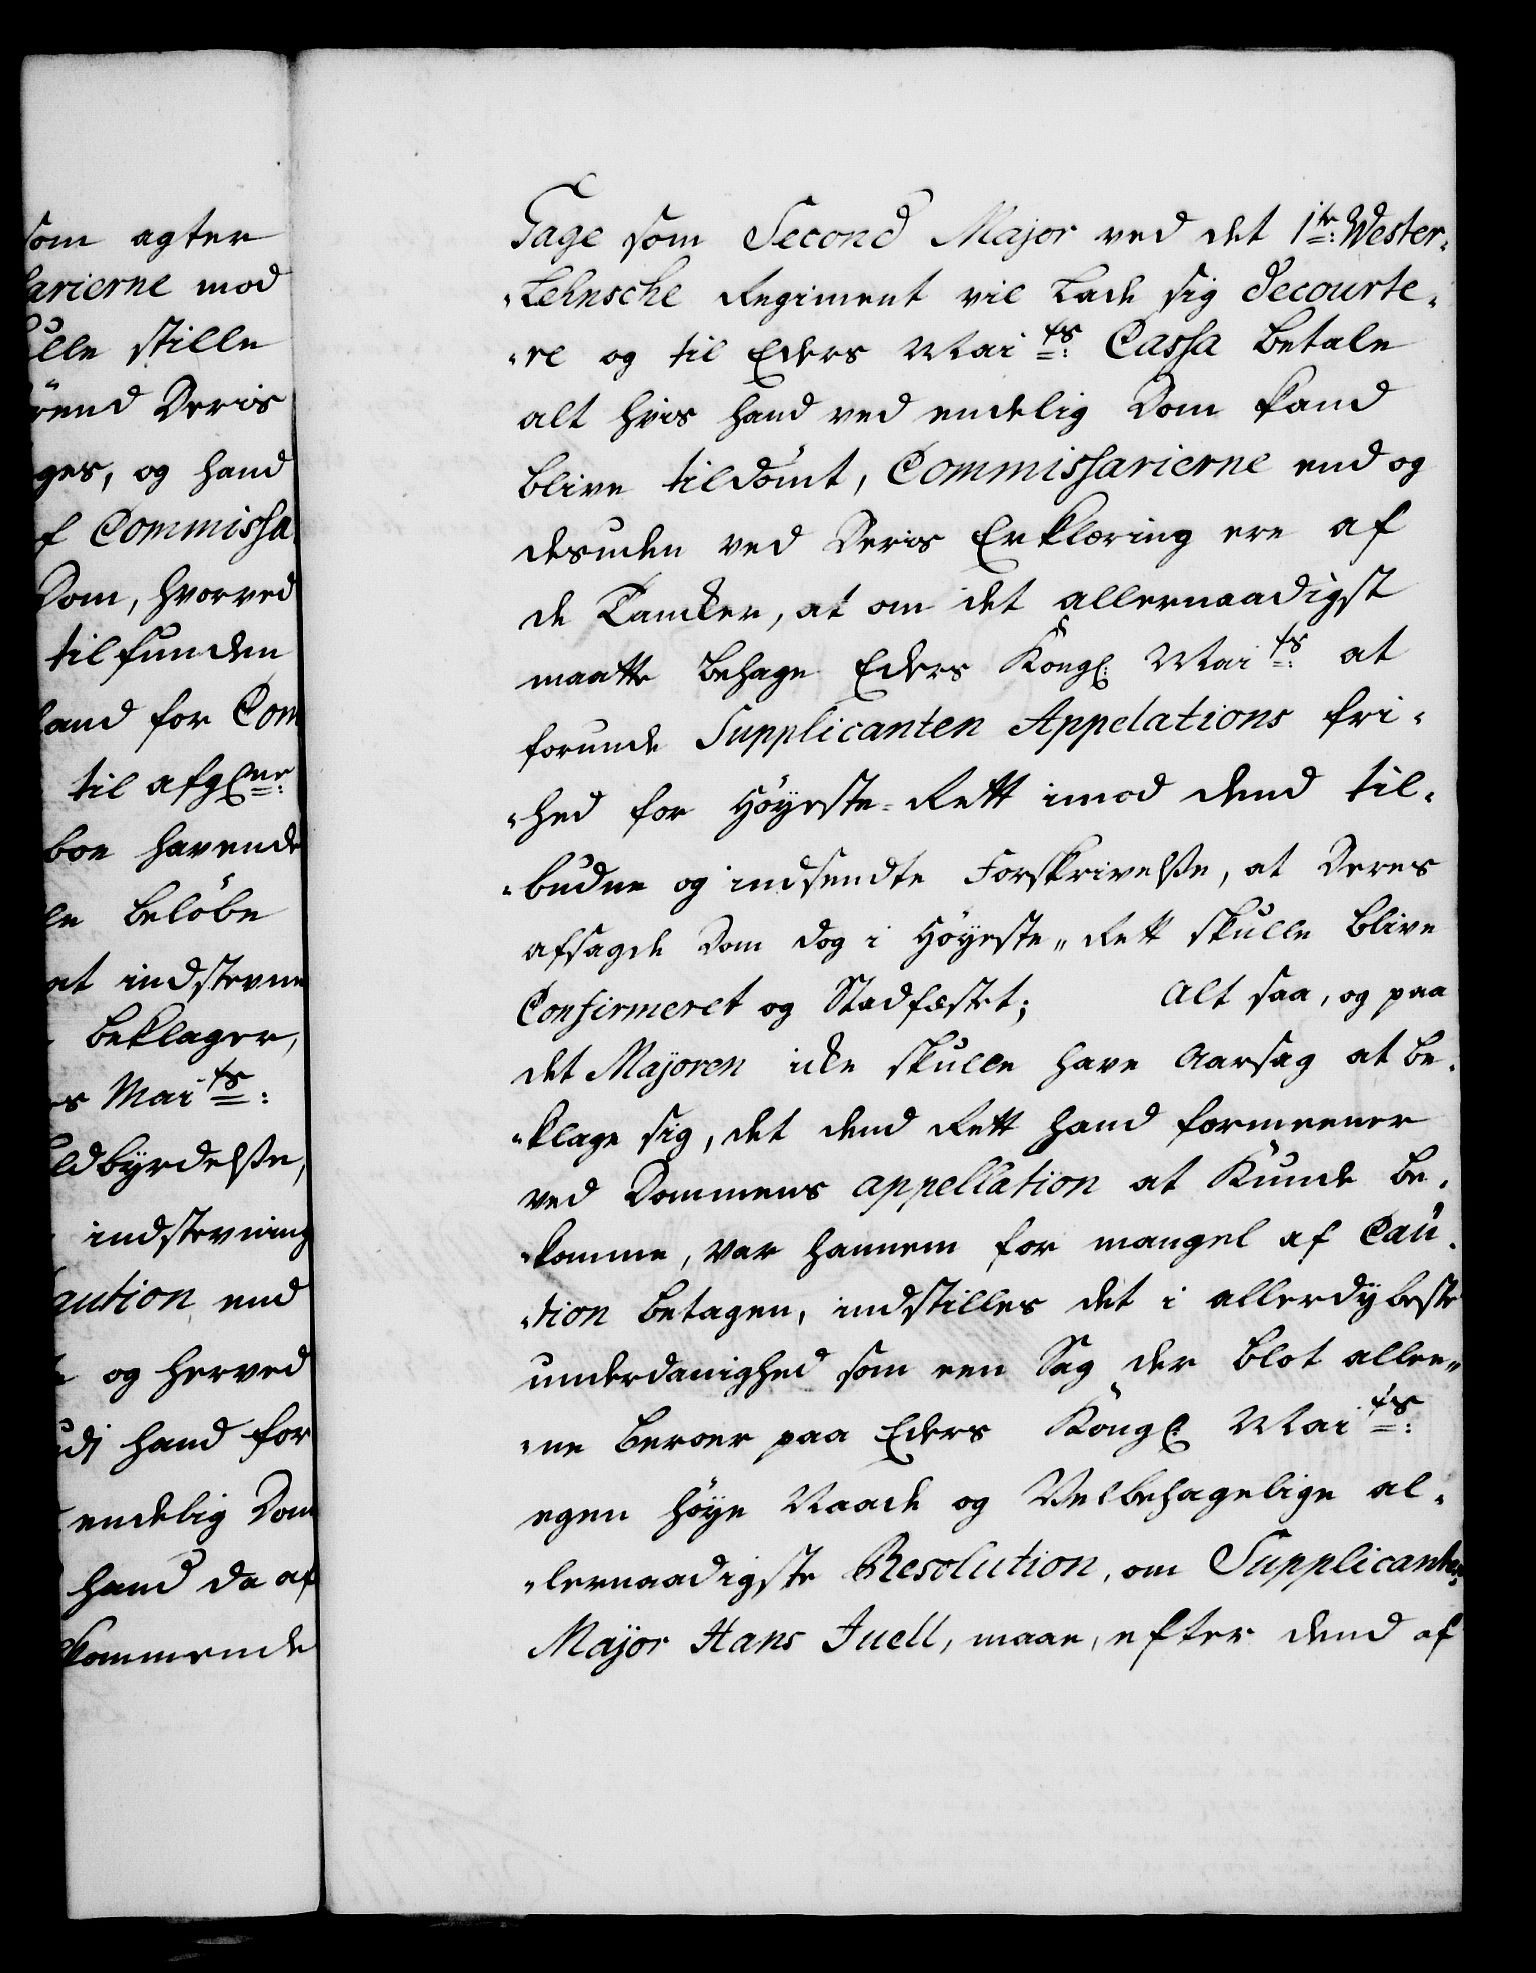 som agter
sarierne mod
ulle stille
rend Deris
ges, og hand
f Commissa
Dom, hvorved
tilfunden
hand for Com
til afgl ne:
boe havende
le beløbe
at indstevne
beklager,
s Mai ts:
ldbyrdelsse,
indstevning
aution end
og herved
hand for
endelig Dom
hand da af
kommende
Gage som Second Major ved det 1te: Wester,
„Lehnsche Regiment vil Lade sig decourte,
„re og til Eders Mai ts: Cassa betale
alt hvis hand ved endelig Dom kand
blive tildömt, Commissarierne end og
desuden ved Deris Erklæring ere af
de Tancker, at om det allernaadigst
maatte behage Eders Kongl: Mai ts: at
forunde Supplicanten Appelations fri,
„hed for Höyeste-Rett imod dend til,
„budne og indsendte Forskrivelsse, at Deres
afsagde Dom dog i Höyeste„Rett skulle blive
Confirmeret og Stadfæstet; Alt saa, og paa
det Majoren icke skulle have Aarsag at be,
„klage sig, det dend Rett hand formeener
ved Dommens appellation at kunde be,
„komme, var hannem for mangel af Cau,
„tion betagen, indstilles det i allerdybeste
underdanighed som een Sag der blot allee„
„ne beroer paa Eders Kongl: Mai ts:
egen höye Naade og Velbehagelige al,
„lernaadigste Resolution, om Supplicanten,
Major Hans Juell, maae, efter dend af